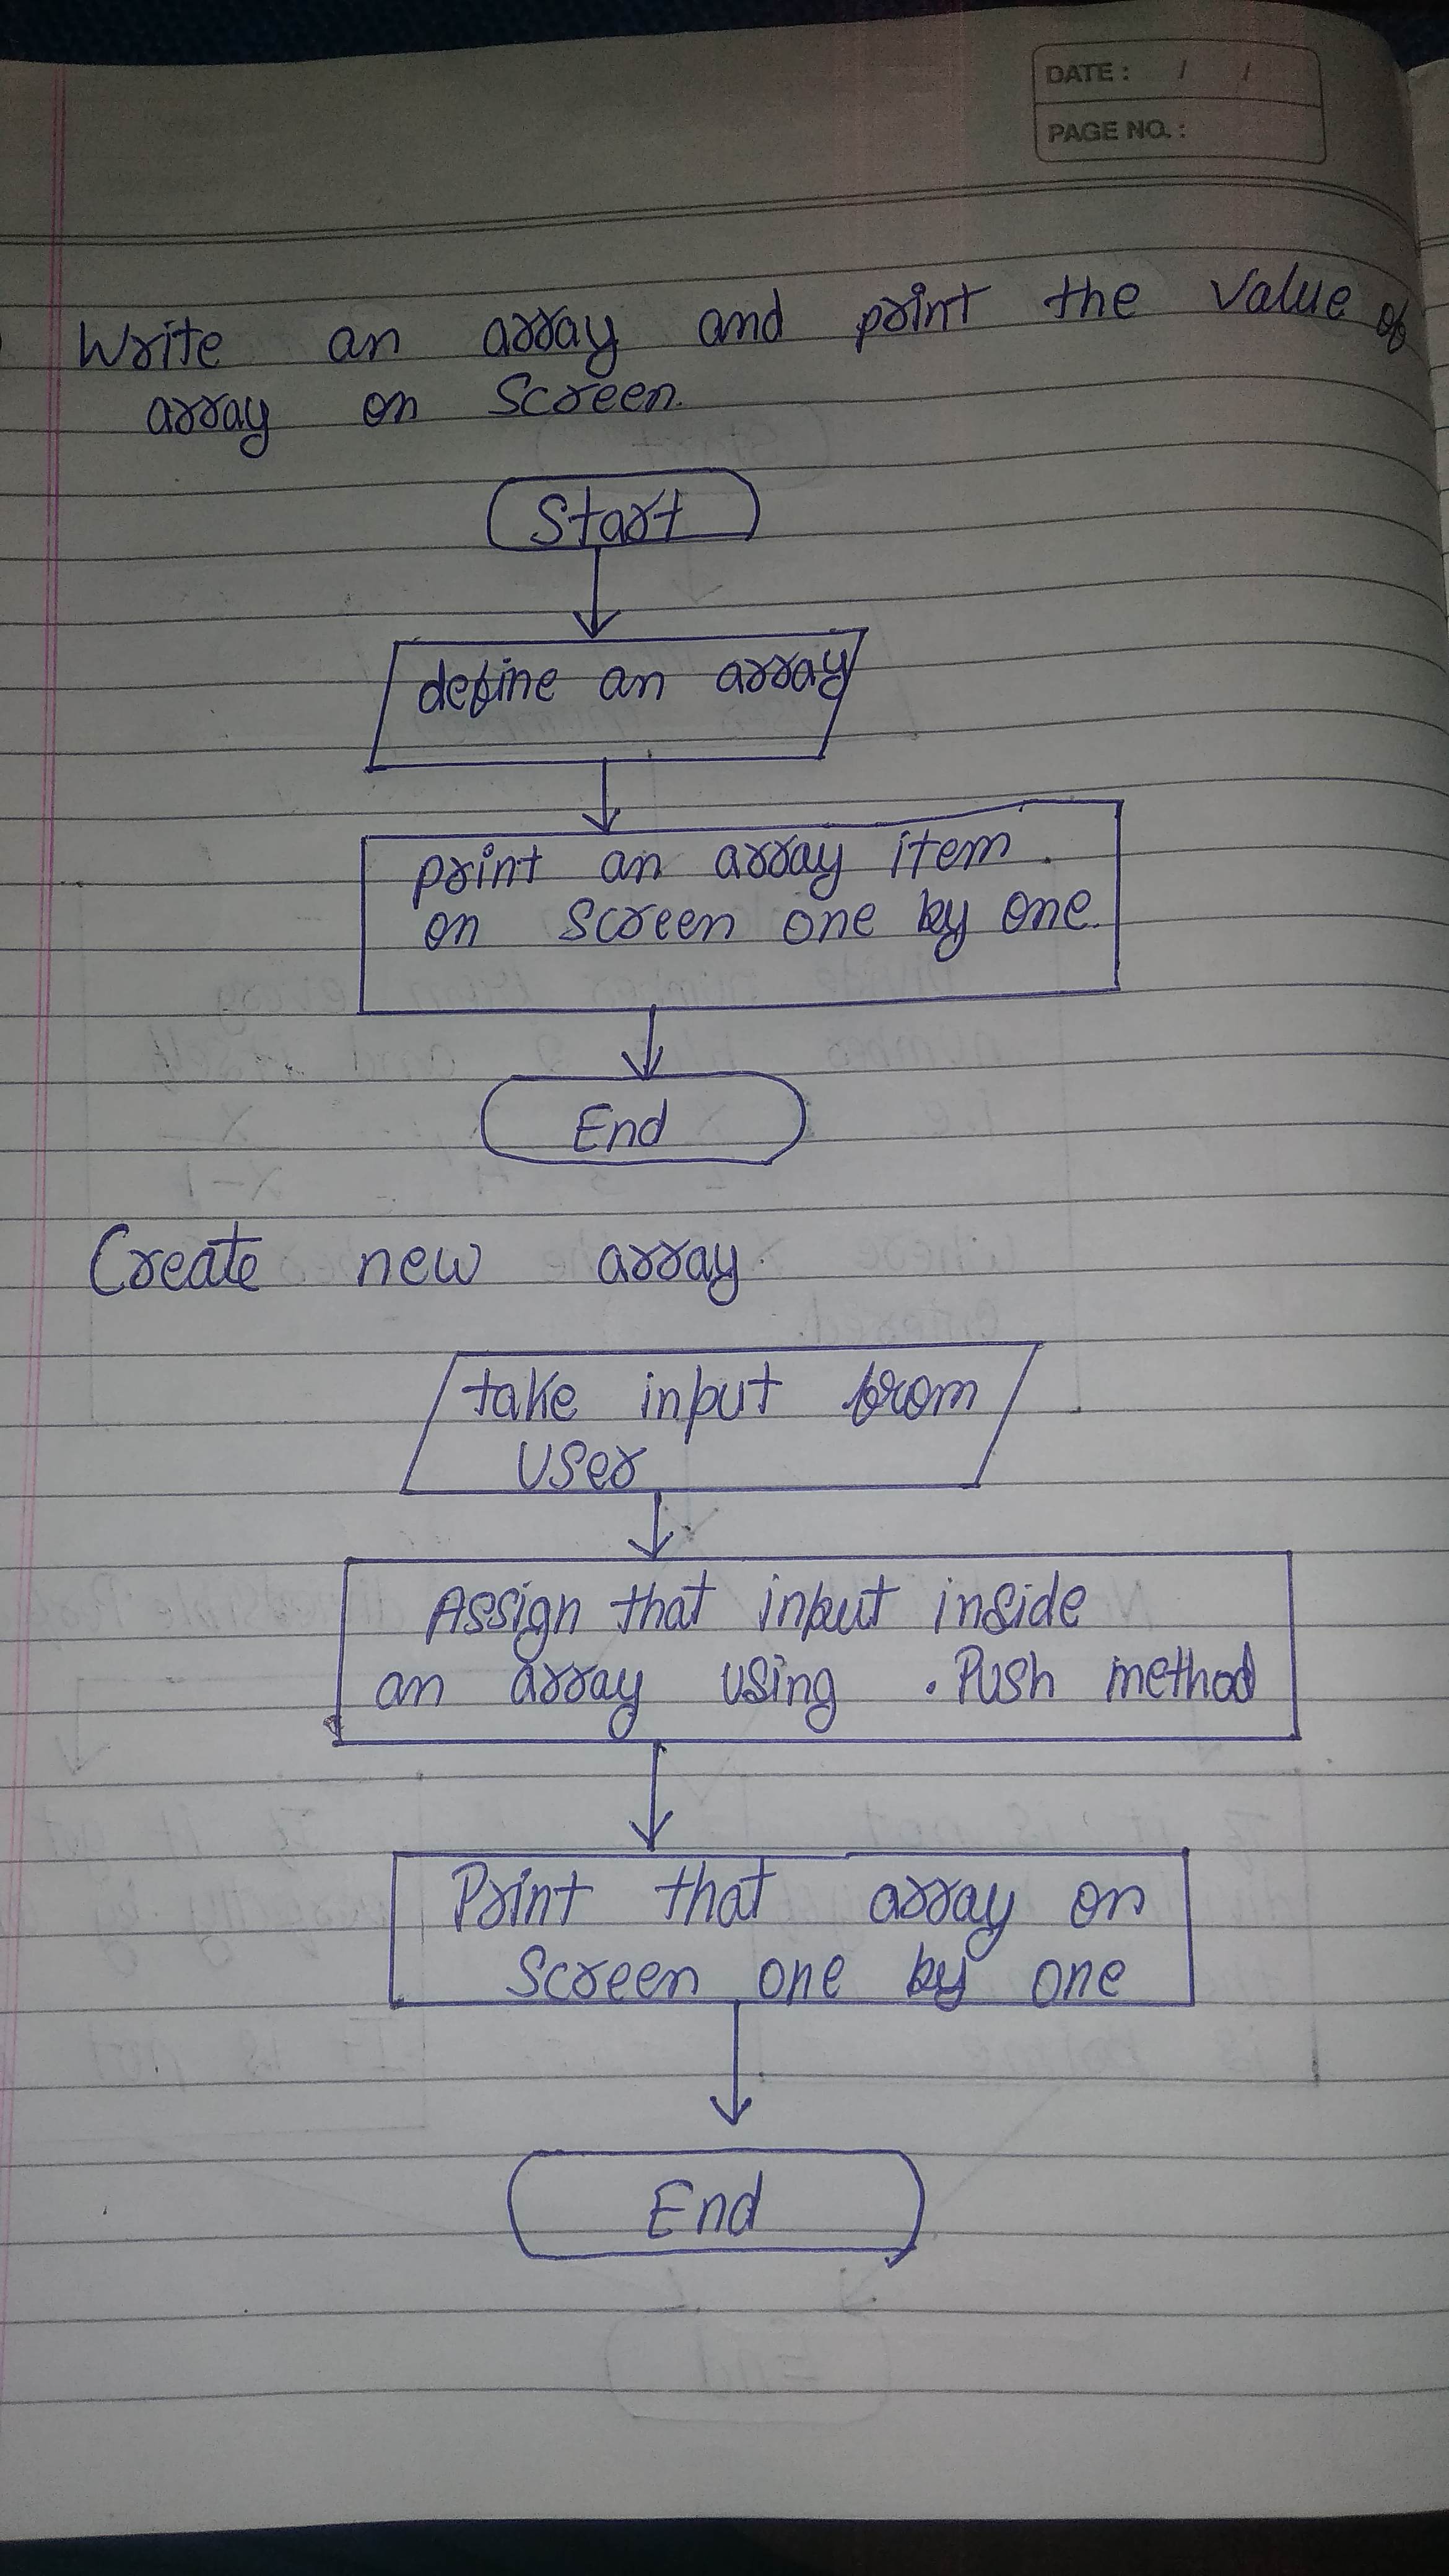 DATE : / /
PAGE NO. :
Write an array and print the value of
array on Screen.
Start
define an array
print an array item
on Screen one by one.
End
Create new array
take input from
user
Assign that input inside
an array using .Push method
Print that array on
Screen one by one
End